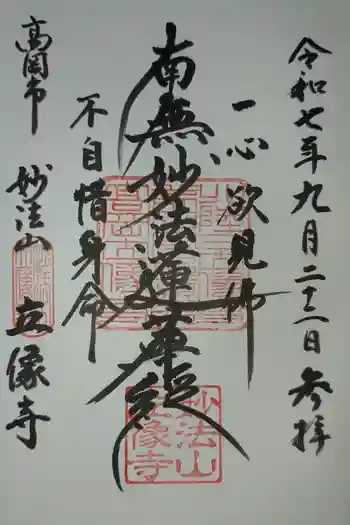 令和七年九月二十二日参拝
一心欲見佛
南無妙法蓮華経
不自惜身命
高岡市
妙法山
立像寺
妙法山
立像寺